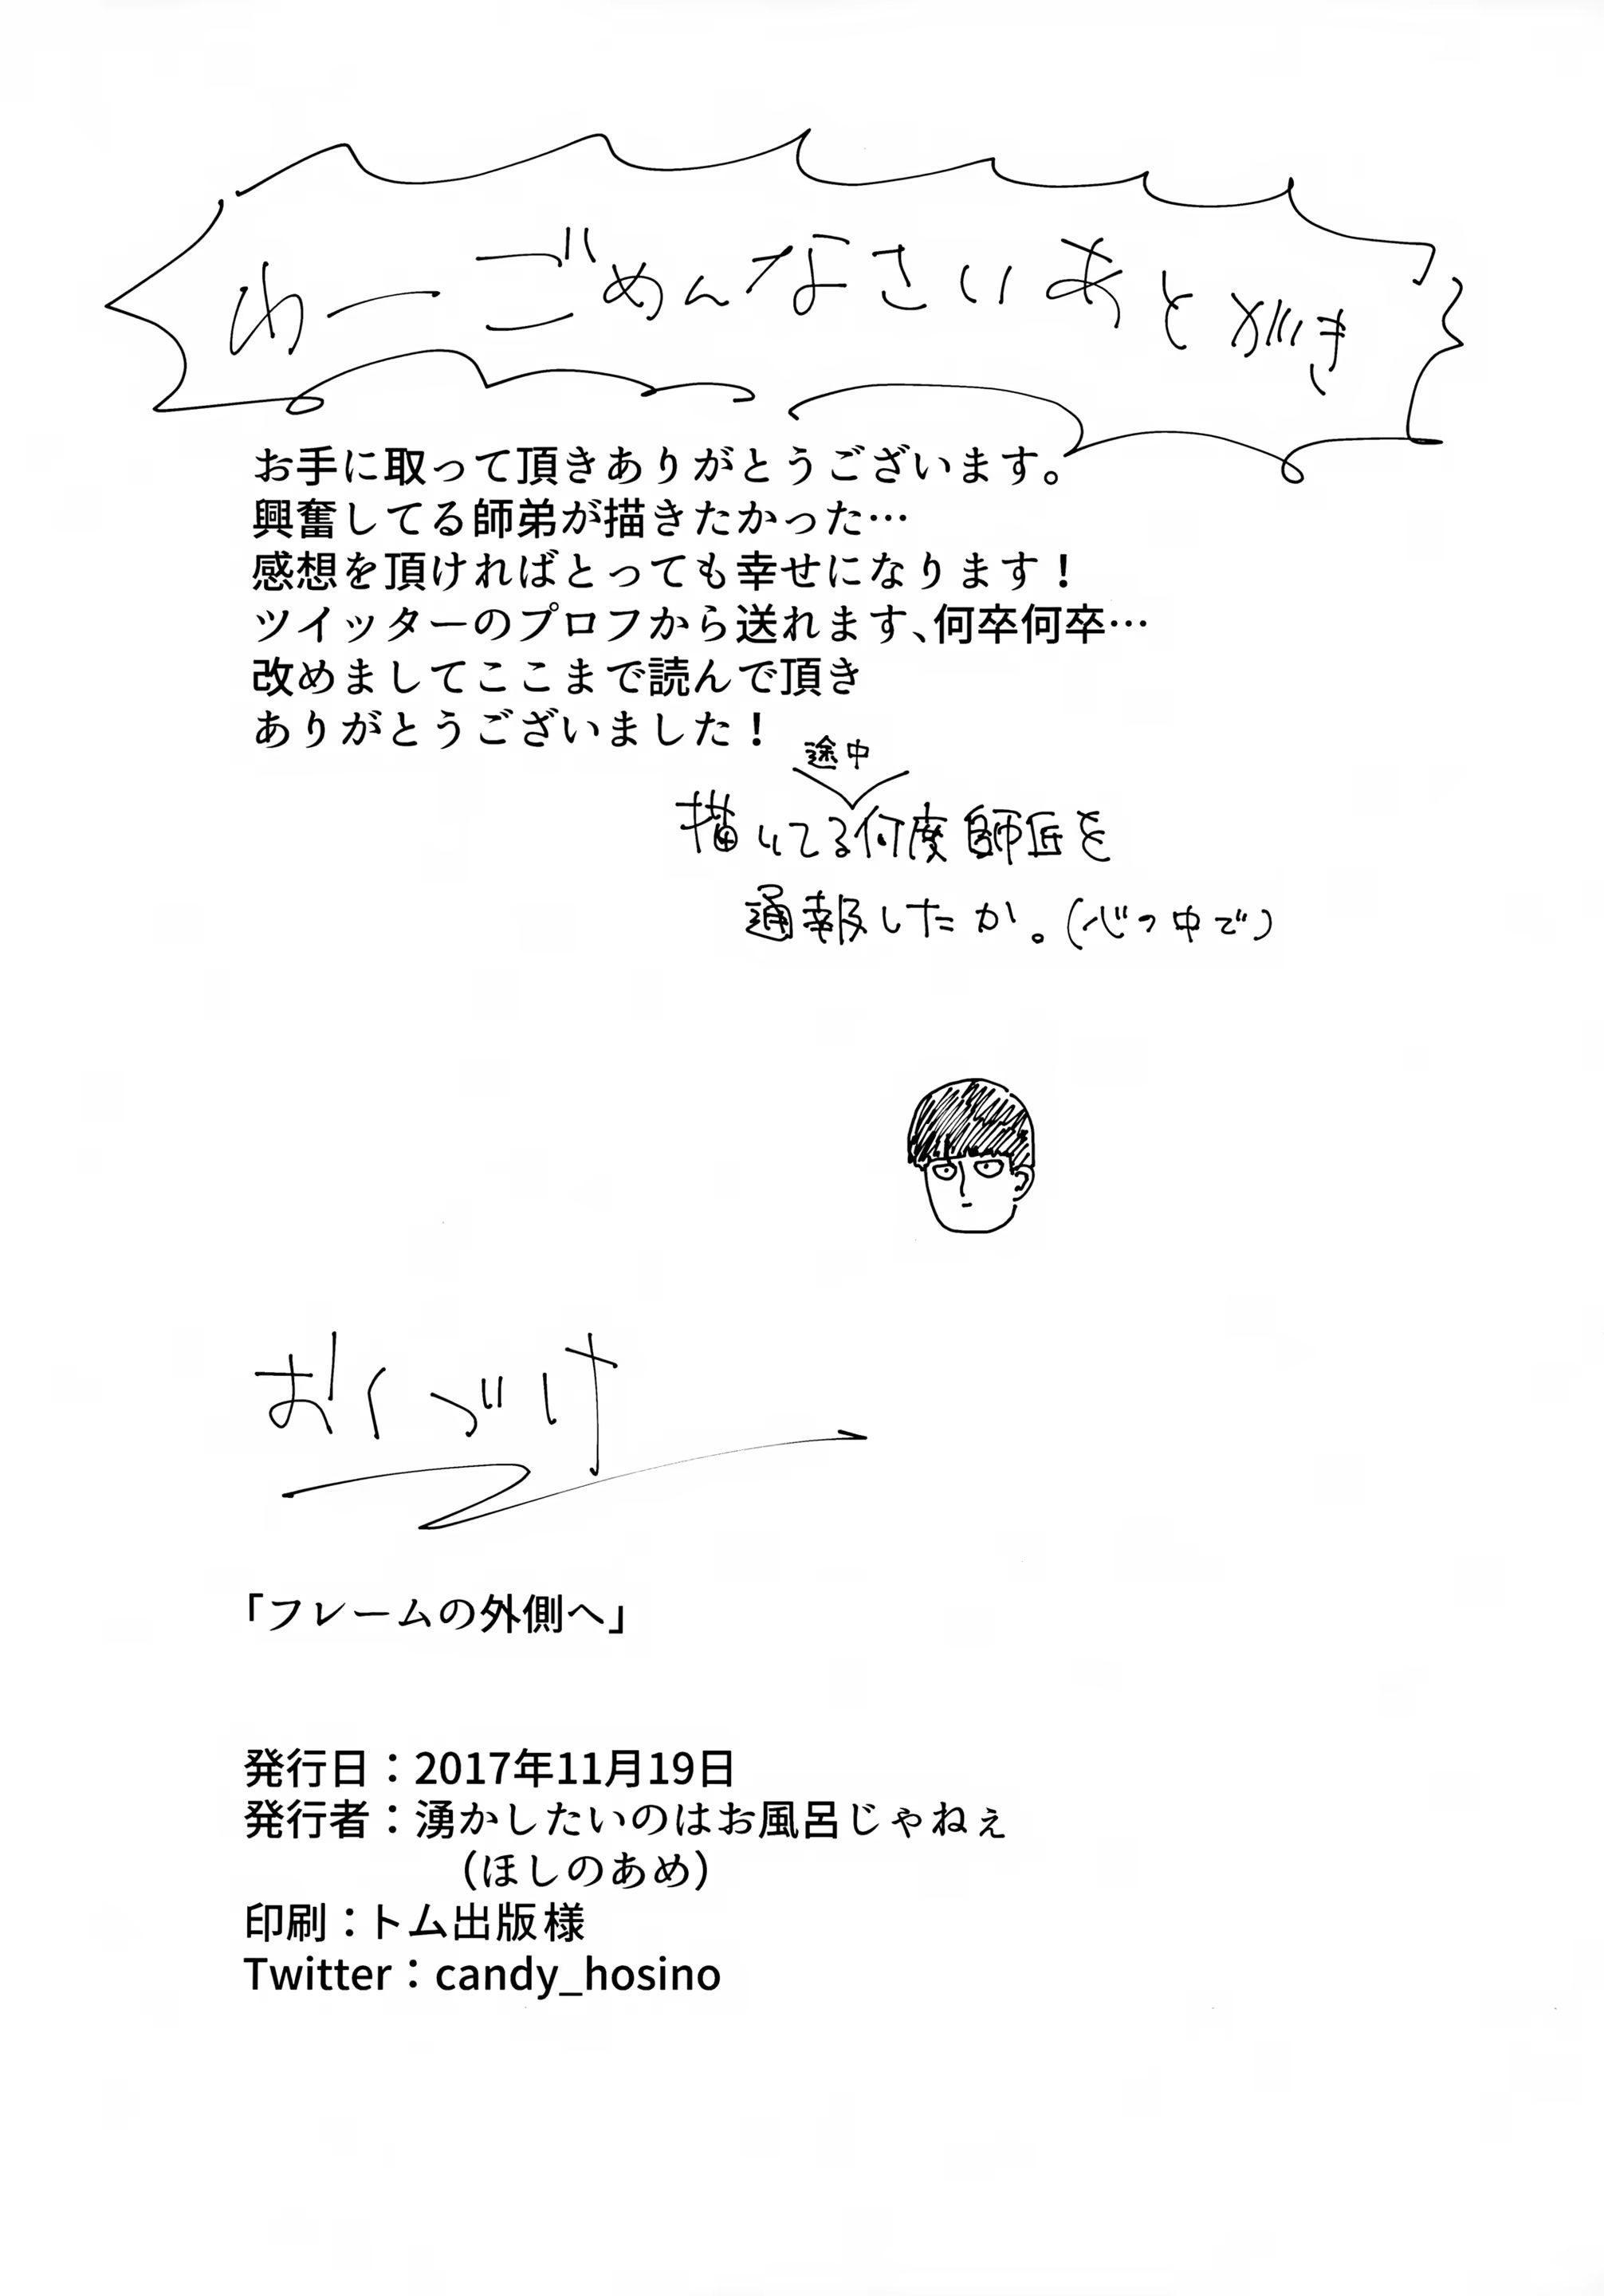 わーごめんなさいあとがき
お手に取って頂きありがとうございます。
興奮してる師弟が描きたかった…
感想を頂ければとっても幸せになります！
ツイッターのプロフから送れます、何卒何卒…
改めましてここまで読んで頂き
ありがとうございました！
途中
描いてる何度師匠を
通報したか。(心の中で)
おくづけ
「フレームの外側へ」
発行日：2017年11月19日
発行者：湧かしたいのはお風呂じゃねぇ
(ほしのあめ)
印刷：トム出版様
Twitter：candy_hosino